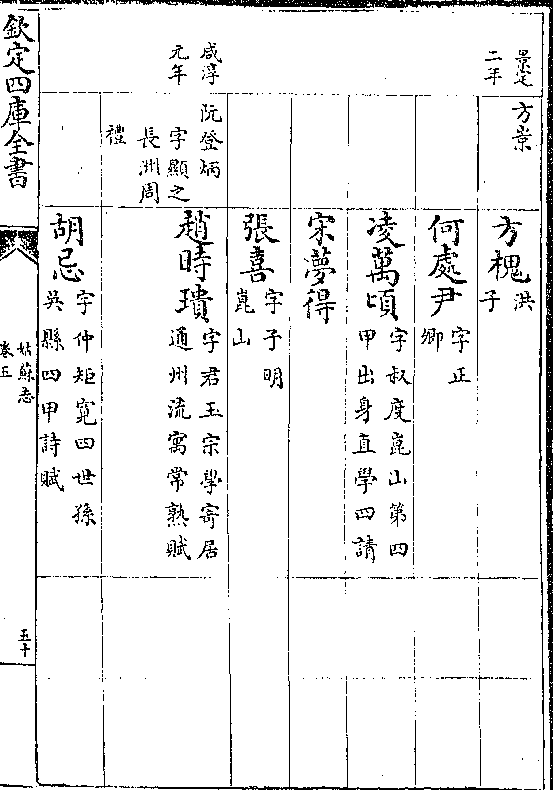 景定
二年
方棠
方槐洪
子
何處尹字正
卿
凌萬頃字叔度崑山第四
甲出身直學四請
宋夢得
張喜字子明
崑山
咸淳
元年
阮登炳
字顯之
長洲周
禮
趙時瓄字君玉宗學寄居
通州流寓常熟賦
胡忌字仲矩寛四世孫
吳縣四甲詩賦
欽定四庫全書
姑蘇志
卷五
五十